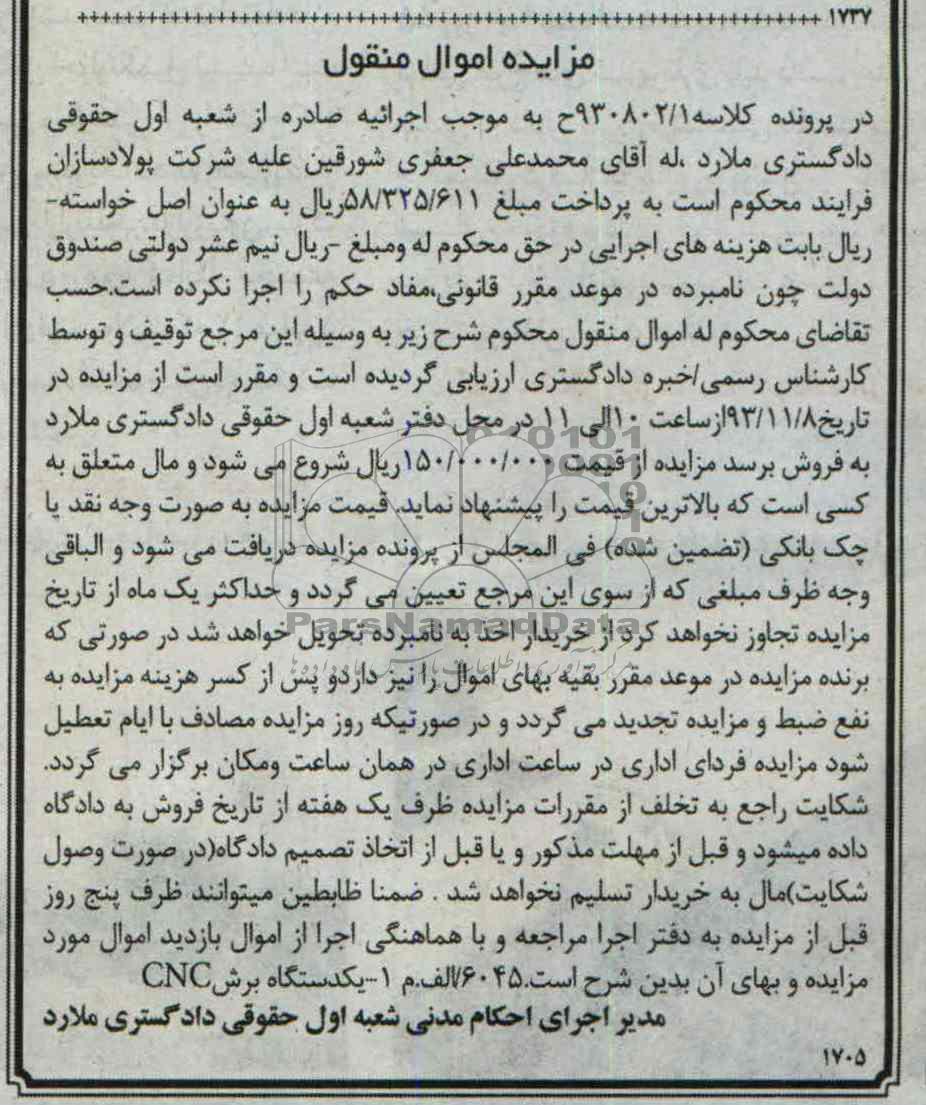 ۱۷۳۷ ++++++++++++++++++++++++++++++++++++++++++++++++++++++
مزایده اموال منقول
در پرونده کلاسه۹۳۰۸۰۲/۱ح به موجب اجرائیه صادره از شعبه اول حقوقی
دادگستری ملارد ،له آقای محمدعلی جعفری شورقین علیه شرکت پولادسازان
فرایند محکوم است به پرداخت مبلغ ۵۸/۳۲۵/۶۱۱ریال به عنوان اصل خواسته-
ریال بابت هزینه های اجرایی در حق محکوم له ومبلغ -ریال نیم عشر دولتی صندوق
دولت چون نامبرده در موعد مقرر قانونی،مفاد حکم را اجرا نکرده است.حسب
تقاضای محکوم له اموال منقول محکوم شرح زیر به وسیله این مرجع توقیف و توسط
کارشناس رسمی/خبره دادگستری ارزیابی گردیده است و مقرر است از مزایده در
تاریخ۹۳/۱۱/۸ازساعت ۱۰الی ۱۱ در محل دفتر شعبه اول حقوقی دادگستری ملارد
به فروش برسد مزایده از قیمت ۱۵۰/۰۰۰/۰۰۰ریال شروع می شود و مال متعلق به
کسی است که بالاترین قیمت را پیشنهاد نماید. قیمت مزایده به صورت وجه نقد یا
چک بانکی (تضمین شده) فی المجلس از پرونده مزایده دریافت می شود و الباقی
وجه ظرف مبلغی که از سوی این مرجع تعیین می گردد و حداکثر یک ماه از تاریخ
مزایده تجاوز نخواهد کرد از خریدار اخذ به نامبرده تحویل خواهد شد در صورتی که
برنده مزایده در موعد مقرر بقیه بهای اموال را نیز داردو پس از کسر هزینه مزایده به
نفع ضبط و مزایده تجدید می گردد و در صورتیکه روز مزایده مصادف با ایام تعطیل
شود مزایده فردای اداری در ساعت اداری در همان ساعت ومکان برگزار می گردد.
شکایت راجع به تخلف از مقررات مزایده ظرف یک هفته از تاریخ فروش به دادگاه
داده میشود و قبل از مهلت مذکور و یا قبل از اتخاذ تصمیم دادگاه(در صورت وصول
شکایت)مال به خریدار تسلیم نخواهد شد . ضمنا ظابطین میتوانند ظرف پنج روز
قبل از مزایده به دفتر اجرا مراجعه و با هماهنگی اجرا از اموال بازدید اموال مورد
مزایده و بهای آن بدین شرح است.۶۰۴۵/الف.م ۱-یکدستگاه برشCNC
مدیر اجرای احکام مدنی شعبه اول حقوقی دادگستری ملارد
۱۷۰۵
ParsNamadData